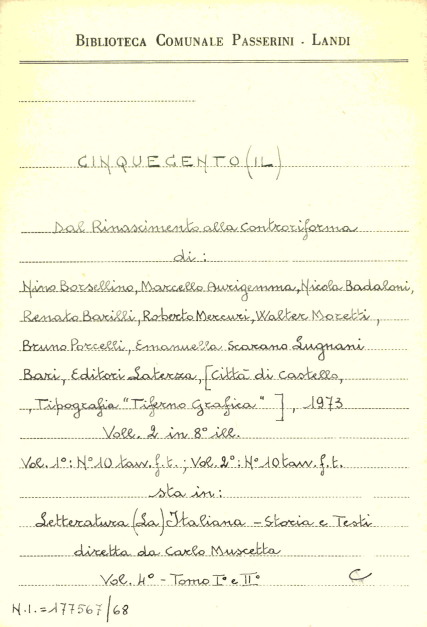 BIBLIOTECA COMUNALE PASSERINI - LANDI
CINQUECENTO (IL)
Dal Rinascimento alla Controriforma
di:
Nino Borsellino, Marcello Aurigemma, Nicola Badaloni,
Renato Barilli, Roberto Mercuri, Walter Moretti,
Bruno Porcelli, Emanuella Scarano Lugnani
Bari, Editori Laterza, [Città di Castello,
, Tipografia "Tiferno Grafica" ], 1973
Voll. 2 in 8° ill.
Vol. 1°: N° 10 tavv. f.t. ; Vol. 2°: N° 10 tavv. f.t.
sta in:
Letteratura (La) Italiana - Storia e Testi
diretta da Carlo Muscetta
Vol. 4° - Tomo I° e II° C
N.I. = 177567/68